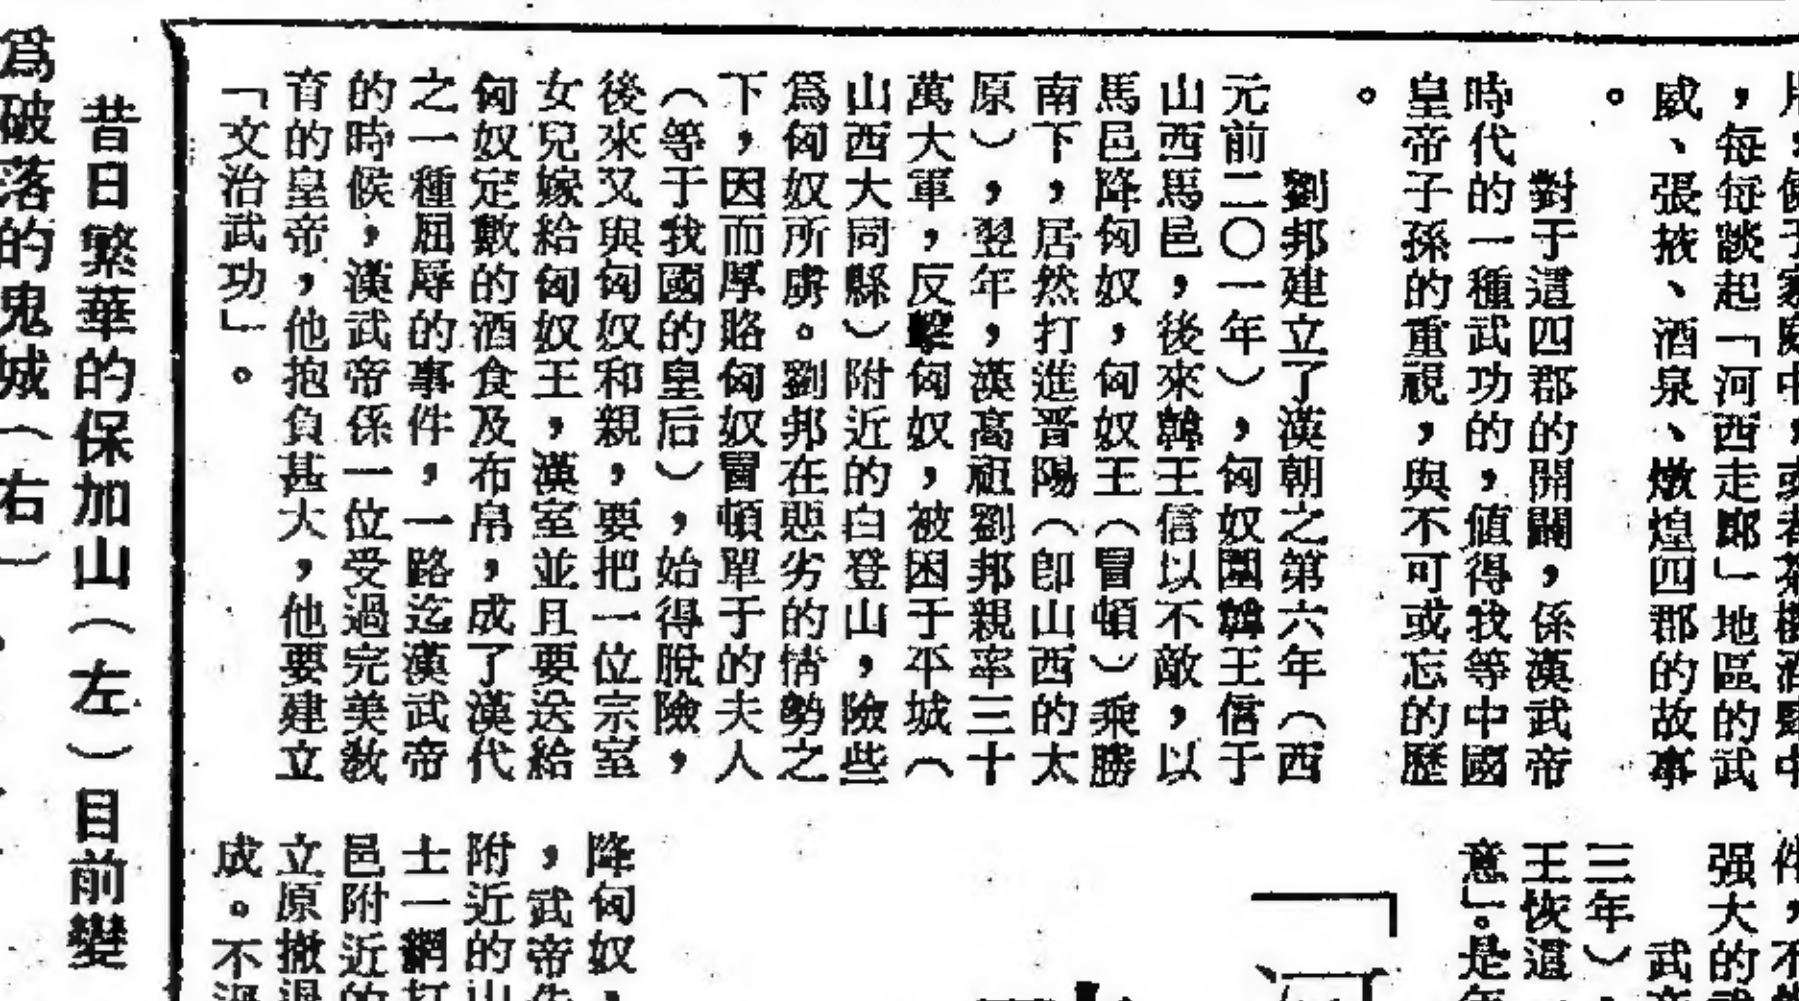 ，每每談起「河西走廊」地區的武
威、張掖、酒泉、燉煌四郡的故事
。
對于這四郡的開闢，係漢武帝
時代的一種武功的，值得我等中國
皇帝子孫的重視，與不可或忘的歷
。
劉邦建立了漢朝之第六年（西
元前二〇一年），匈奴圍韓王信于
山西馬邑，後來韓王信以不敵，以
馬邑降匈奴，匈奴王（冒頓）乘勝
南下，居然打進晋陽（卽山西的太
原），翌年，漢高祖劉邦親率三十
萬大軍，反擊匈奴，被困于平城（
山西大同縣）附近的白登山，險些
爲匈奴所虜。劉邦在惡劣的情勢之
下，因而厚賂匈奴冒頓單于的夫人
（等于我國的皇后），始得脫險，
後來又與匈奴和親，要把一位宗室
女兒嫁給匈奴王，漢室並且要送給
匈奴定數的酒食及布帛，成了漢代
之一種屈辱的事件，一路迄漢武帝
的時候，漢武帝係一位受過完美教
育的皇帝，他抱負甚大，他要建立
「文治武功」。
强大的
武
三年）
王恢還
意」。是年
降匈奴，
，武帝
附近的山
士一網打
邑附近的
立原撤退
成。不
昔日繁華的保加山（左）目前變
爲破落的鬼城（右）